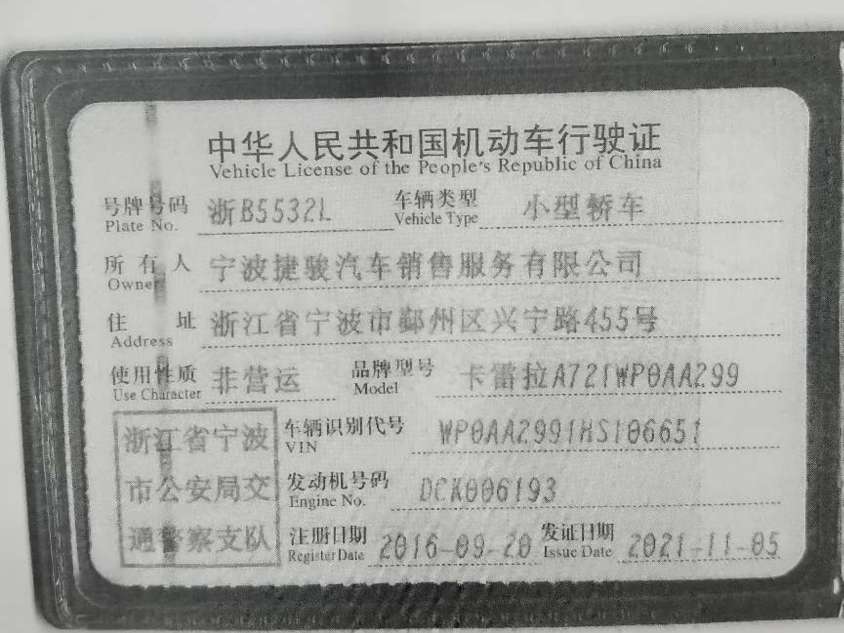 中华人民共和国机动车行驶证
Vehicle License of the People's Republic of China
号牌号码 浙B5532L 车辆类型 小型轿车
Plate No. Vehicle Type
所有人 宁波捷骏汽车销售服务有限公司
Owner
住址 浙江省宁波市鄞州区兴宁路455号
Address
使用性质 非营运 品牌型号 卡雷拉A721WP0AA299
Use Character Model
浙江省宁波 车辆识别代号 WP0AA2991HS106651
VIN
市公安局交 发动机号码 DCK006193
Engine No.
通警察支队 注册日期 2016-09-20 发证日期 2021-11-05
Register Date Issue Date